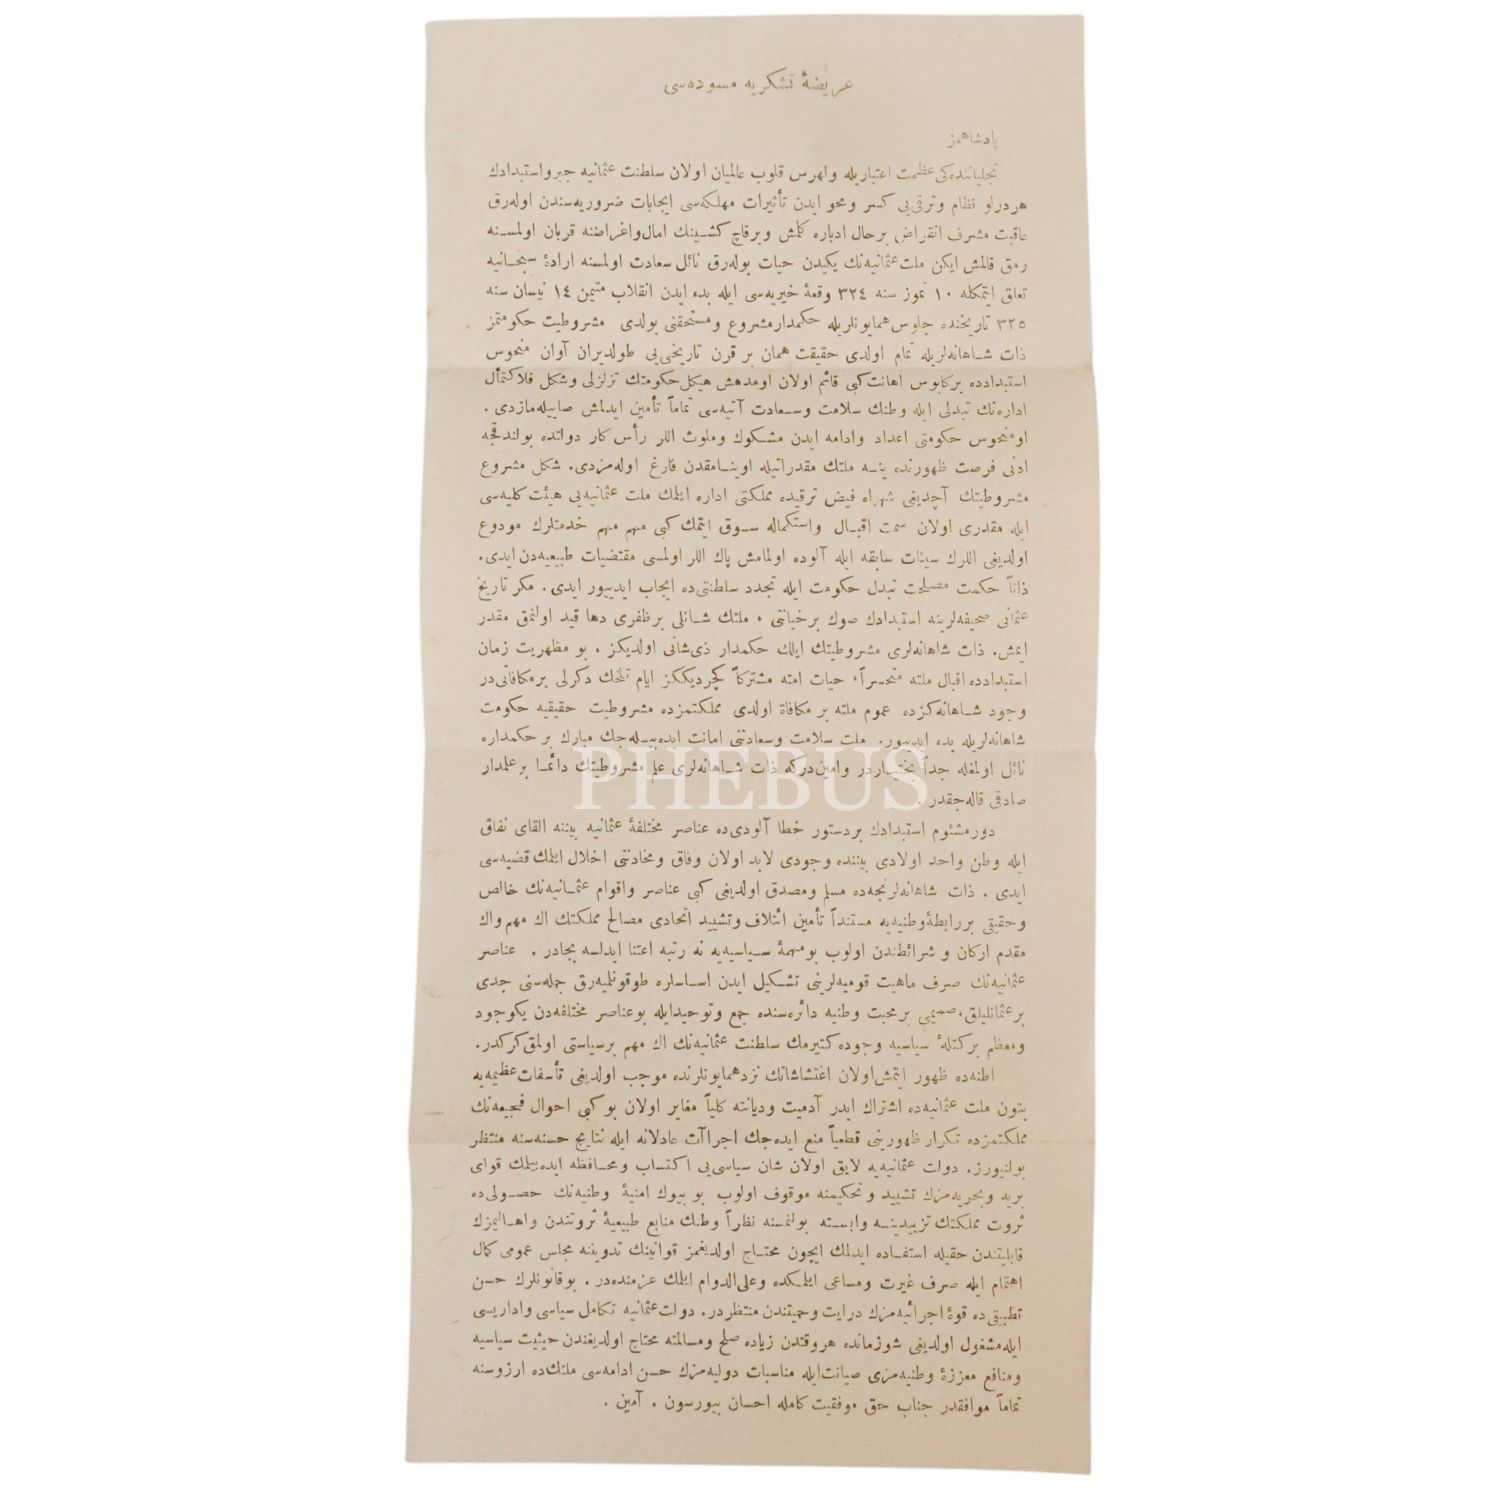 عريضهٔ تشكريه مسوده‌سی
پادشاهمز
تجلياتنده‌كی عظمت اعتباريله والهرس قلوب عالميان اولان سلطنت عثمانيه جبر واستبدادك
هردرلو نظام وترقی‌يی كسر ومحو ايدن تأثيرات مهلكه‌سی ايجابات ضروريه‌سندن اوله‌رق
عاقبت مشرف انقراض برحال ادباره كلمش وبرقاچ كشينك امال واغراضنه قربان اولمسنه
رمق قالمش ايكن ملت عثمانيه‌نك يكيدن حيات بوله‌رق نائل سعادت اولمسنه ارادهٔ سبحانيه
تعلق ايتمكله ١٠ تموز سنه ٣٢٤ وقعهٔ خيريه‌سی ايله بدء ايدن انقلاب متيمن ١٤ نيسان سنه
٣٢٥ تاريخنده جلوس همايونلريله حكمدار مشروع ومستحقنی بولدی مشروطيت حكومتمز
ذات شاهانه‌لريله تمام اولدی حقيقت همان بر قرن تاريخی‌يی طولديران آوان منحوس
استبدادده بركابوس اهانت كبی قائم اولان اومدهش هيكل حكومتك تزلزلی وشكل فلاكتمأل
اداره‌نك تبدلی ايله وطنك سلامت وسعادت آتيه‌سی تماماً تأمين ايدلمش صاييله‌مازدی .
اومنحوس حكومتی اعداد وادامه ايدن مشكوك وملوث اللر رأس كار دولتده بولندقجه
ادنی فرصت ظهورنده ينه ملتك مقدراتيله اوينامقدن فارغ اوله‌مزدی. شكل مشروع
مشروطيتك آچديغی شهراه فيض ترقيده مملكتی اداره ايلمك ملت عثمانيه‌يی هيئت كليه‌سی
ايله مقدری اولان سمت اقبال واستكماله سوق ايتمك كبی مهم مهم خدمتلرك مودوع
اولديغی اللرك سيئات سابقه ايله آلوده اولمامش پاك اللر اولمسی مقتضيات طبيعيه‌دن ايدی.
ذاتاً حكمت مصلحت تبدل حكومت ايله تجدد سلطنتی‌ده ايجاب ايدييور ايدی . مكر تاريخ
عثمانی صحيفه‌لرينه استبدادك صوك برخيانتی ، ملتك شانلی برظفری دها قيد اولنمق مقدر
ايمش. ذات شاهانه‌لری مشروطيتك ايلك حكمدار ذی‌شانی اولديكز ، بو مظهريت زمان
استبدادده اقبال ملته متحسراً، حيات امته مشتركاً كچرديككز ايام تلخك دكرلی برمكافاتی‌در
وجود شاهانه‌كزده عموم ملته بر مكافاة اولدی مملكتمزده مشروطيت حقيقيه حكومت
شاهانه‌لريله بدء ايدييور. ملت سلامت وسعادتنی امانت ايده‌بيله‌جك مبارك بر حكمداره
نائل اولمغله جداً بختياردر وامين‌دركه ذات شاهانه‌لری علم مشروطيتك دائما برعلمدار
صادقی قاله‌جقدر .
دور مشئوم استبدادك بردستور خطا آلودی‌ده عناصر مختلفهٔ عثمانيه بيننه القای نفاق
ايله وطن واحد اولادی بيننده وجودی لابد اولان وفاق ومخادنتی اخلال ايلمك قضيه‌سی
ايدی . ذات شاهانه‌لرنجه‌ده مسلم ومصدق اولديغی كبی عناصر واقوام عثمانيه‌نك خالص
وحقيقی بررابطهٔ وطنيه‌يه مستنداً تأمين ائتلاف وتشييد اتحادی مصالح مملكتك اك مهم واك
مقدم اركان و شرائطندن اولوب بومهمهٔ سياسيه‌يه نه رتبه اعتنا ايدلسه بجادر . عناصر
عثمانيه‌نك صرف ماهيت قوميه‌لرينی تشكيل ايدن اساسلره طوقونلميه‌رق جمله‌سنی جدی
برعثمانليلق، صميمی بر محبت وطنيه دائره‌سنده جمع وتوحيدايله بوعناصر مختلفه‌دن يكوجود
ومعظم بركتلهٔ سياسيه وجوده كتيرمك سلطنت عثمانيه‌نك اك مهم برسياستی اولمق كركدر.
اطنه‌ده ظهور ايتمش اولان اغتشاشاتك نزد همايونلرنده موجب اولديغی تأسفات عظيمه‌يه
بتون ملت عثمانيه‌ده اشتراك ايدر آدميت وديانته كلياً مغاير اولان بو كبی احوال فجيعه‌نك
مملكتمزده تكرار ظهورينی قطعياً منع ايده‌جك اجراآت عادلانه ايله نتايج حسنه‌سنه منتظر
بولنيورز. دولت عثمانيه‌يه لايق اولان شان سياسی‌يی اكتساب ومحافظه ايده‌بيلمك قوای
بريه وبحريه‌مزك تشييد وتحكيمنه موقوف اولوب بو بيوك امنيهٔ وطنيه‌نك حصولی‌ده
ثروت مملكتك تزييدينه وابسته بولنمسنه نظراً وطنك منابع طبيعيهٔ ثروتندن واهاليمزك
قابليتندن حقيله استفاده ايدلمك ايچون محتاج اولديغمز قوانينك تدويننه مجلس عمومی كمال
اهتمام ايله صرف غيرت ومساعی ايلمكده وعلی الدوام ايلمك عزمنده‌در . بوقانونلرك حسن
تطبيقی‌ده قوهٔ اجرائيه‌مزك درايت وحميتندن منتظردر. دولت عثمانيه تكامل سياسی واداريسی
ايله مشغول اولديغی شو زمانده هروقتدن زياده صلح ومسالمته محتاج اولديغندن حيثيت سياسيه
ومنافع معززهٔ وطنيه‌مزی صيانت‌ايله مناسبات دوليه‌مزك حسن ادامه‌سی ملتك‌ده ارزوسنه
تماماً موافقدر جناب حق موفقيت كامله احسان بيورسون . آمين .
PHEBUS